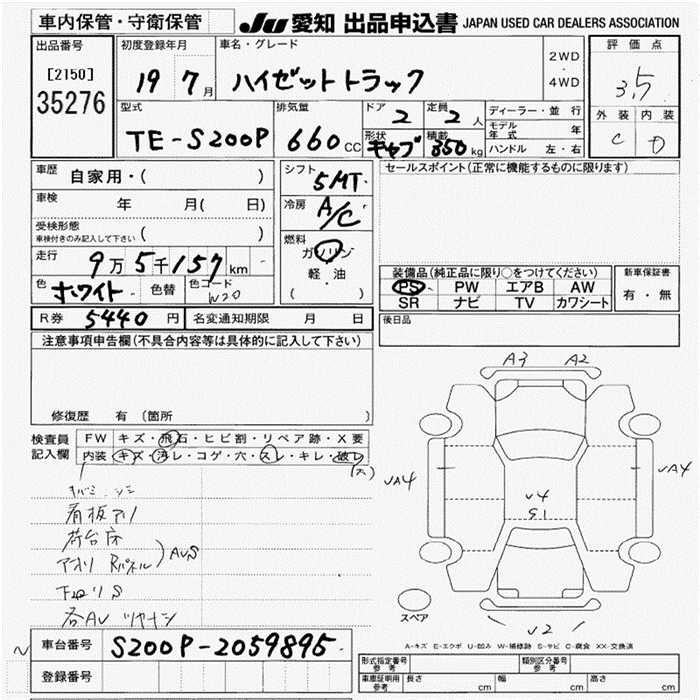 車内保管・守衛保管
JU 愛知 出品申込書 JAPAN USED CAR DEALERS ASSOCIATION
出品番号
[2150]
35276
初度登録年月
19 7月
車名・グレード
ハイゼットトラック
2WD
・
4WD
評価点
3.5
外装 内装
C D
型式
TE-S200P
排気量
660 CC
ドア
2
定員
2人
形状
キャブ
積載
350kg
ディーラー・並行
モデル年式 年
ハンドル 左・右
車歴
自家用・( )
車検
年 月( 日)
受検形態
車検付きのみ記入して下さい ( )
走行
9万5千157km
色
ホワイト
色替
色コード
W20
シフト
5MT
冷房
A/C
燃料
ガソリン
軽・油
( )
セールスポイント(正常に機能するものに限ります)
装備品(純正品に限り○をつけてください)
PS PW エアB AW
SR ナビ TV カワシート
新車保証書
有・無
R券 5440円
名変通知期限 月 日
後日品
注意事項申告欄(不具合内容等は具体的に記入して下さい)
修復歴 有 (箇所 )
検査員記入欄
FW キズ・飛石・ヒビ割・リペア跡・X要
内装 キズ・汚レ・コゲ・穴・スレ・キレ・破レ
(大)
看板アリ
荷台床
アオリ Rパネル
AUS
下回リS
各AU ツヤナシ
A3 A2
UA4
UA4
U4
S1
U2
スペア
A-キズ E-エクボ U-凹み W-補修跡 S-サビ C-腐食 XX-交換済
車台番号
S200P-2059895
登録番号
形式指定番号
参考
類別区分番号
参考
車庫証明用
参考
長さ cm
幅 cm
高さ cm